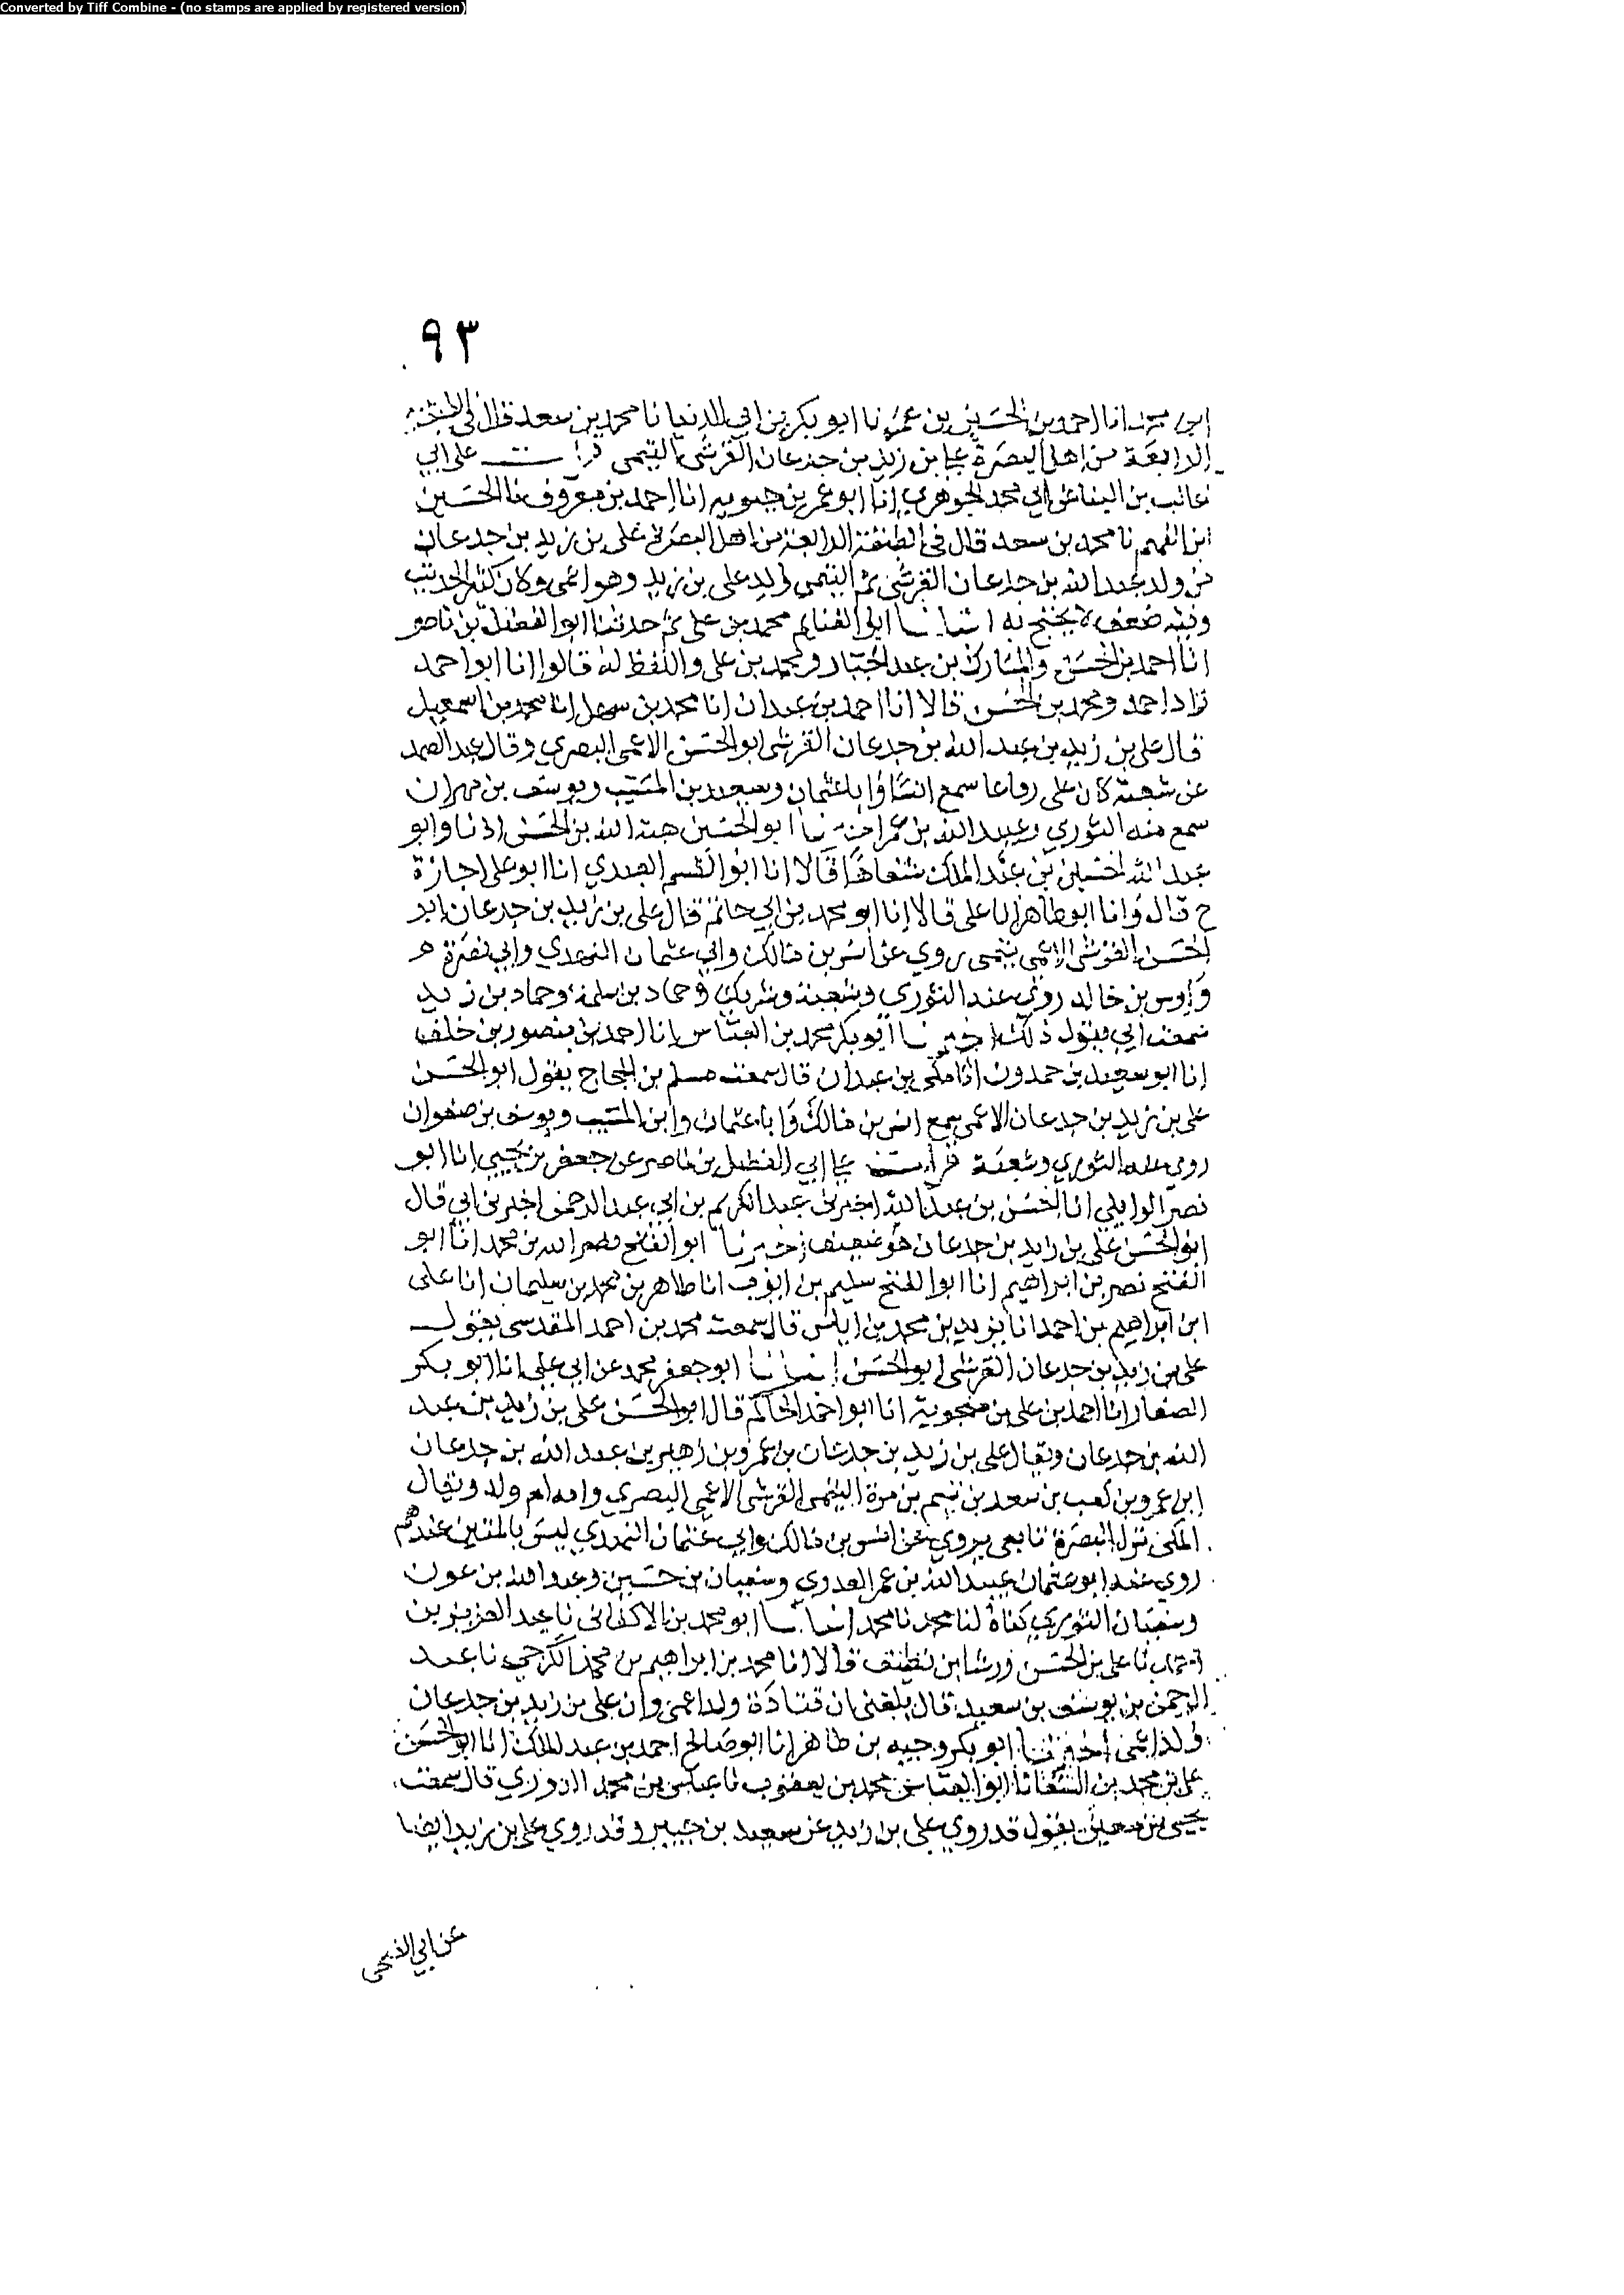 Converted by Tiff Combine - (no stamps are applied by registered version)
٩٣
انا احمد بن الحسين بن عمر نا ابو بكر بن ابي الدنيا نا محمد بن سعد قال في الطبقة
الرابعة من اهل البصرة علي بن زيد بن جدعان القرشي التيمي قرات على ابي
غالب بن البنا عن ابي محمد الجوهري انا ابو عمر بن حيويه انا احمد بن معروف نا الحسين
ابن الفهم نا محمد بن سعد قال في الطبقة الرابعة من اهل البصرة علي بن زيد بن جدعان
من ولد عبد الله بن جدعان القرشي ثم التيمي ولد علي بن زيد وهو اعمى وكان كثير الحديث
وفيه ضعف لا يحتج به انبانا ابو الغنايم محمد بن علي ثم حدثنا ابو الفضل بن ناصر
انا احمد بن الحسن والمبارك بن عبد الجبار ومحمد بن علي واللفظ له قالوا انا ابو احمد
زاد احمد ومحمد بن الحسن قالا انا احمد بن عبدان انا محمد بن سهل انا محمد بن اسمعيل
قال علي بن زيد بن عبد الله بن جدعان القرشي ابو الحسن الاعمى البصري وقال عبد الصمد
عن شعبة كان علي رفاعا سمع انسا وابا عثمان وسعيد بن المسيب ويوسف بن مهران
سمع منه الثوري وعبيد الله بن عمر اخبرنا ابو الحسين هبة الله بن الحسن اذنا وابو
عبد الله الحسين بن عبد الملك شفاها قالا انا ابو القسم العبدي انا ابو علي اجازة
ح قال وانا ابو طاهر انا علي قالا انا ابو محمد بن ابي حاتم قال علي بن زيد بن جدعان ابو
الحسن القرشي الاعمى تيمى روي عن انس بن مالك وابي عثمان النهدي وابي نضرة
واوس بن خالد روى عنه الثوري وشعبة وشريك وحماد بن سلمة وحماد بن زيد
سمعت ابي يقول ذلك اخبرنا ابو بكر محمد بن العباس انا احمد بن منصور بن خلف
انا ابو سعيد بن حمدون انا مكي بن عبدان قال سمعت مسلم بن الحجاج يقول ابو الحسن
علي بن زيد بن جدعان الاعمى سمع انس بن مالك وابا عثمان وابن المسيب ويوسف بن صفوان
روى عنه الثوري وشعبة قرات على ابي الفضل بن ناصر عن جعفر بن يحيى انا ابو
نصر الوايلي انا الحسن بن عبد الله اخبرني عبد الكريم بن ابي عبد الرحمن اخبرني ابي قال
ابو الحسن علي بن زيد بن جدعان هو ضعيف اخبرنا ابو الفتح نصر الله بن محمد انا ابو
الفتح نصر بن ابراهيم انا ابو الفتح سليم بن ايوب انا طاهر بن محمد بن سليمان انا علي
ابن ابراهيم بن احمد انا يزيد بن محمد بن اياس قال سمعت محمد بن احمد المقدسي يقول
علي بن زيد بن جدعان القرشي ابو الحسن انبانا ابو جعفر محمد عن ابي علي انا ابو بكر
الصفار انا احمد بن علي بن منجويه انا ابو احمد الحاكم قال ابو الحسن علي بن زيد بن عبد
الله بن جدعان ويقال علي بن زيد بن جدعان بن عمرو بن زهير بن عبد الله بن جدعان
ابن عمرو بن كعب بن سعد بن تيم بن مرة التيمي القرشي الاعمى البصري وامه ام ولد ويقال
المكي نزل البصرة تابعي يروي عن انس بن مالك وابي عثمان النهدي ليس بالمتين عندهم
روى عنه ابو عثمان عبيد الله بن عمر العدوي وسفيان بن حسين وعبد الله بن عون
وسفيان الثوري كناه لنا محمد نا محمد انبانا ابو محمد بن الاكفاني نا عبد العزيز بن
نا علي بن الحسن ورشا بن نظيف قالا انا محمد بن ابراهيم بن محمد الكرجي نا عبد
الرحمن بن يوسف بن سعيد قال بلغني ان قتادة ولد اعمى وان علي بن زيد بن جدعان
ولد اعمى اخبرنا ابو بكر وجيه بن طاهر انا ابو صالح احمد بن عبد الملك انا ابو الحسن
علي بن محمد بن السقا نا ابو العباس محمد بن يعقوب نا عباس بن محمد الدوري قال سمعت
يحيى بن معين يقول قد روى علي بن زيد عن سعيد بن جبير وقد روى علي بن زيد ايضا
عن ابي الضحى